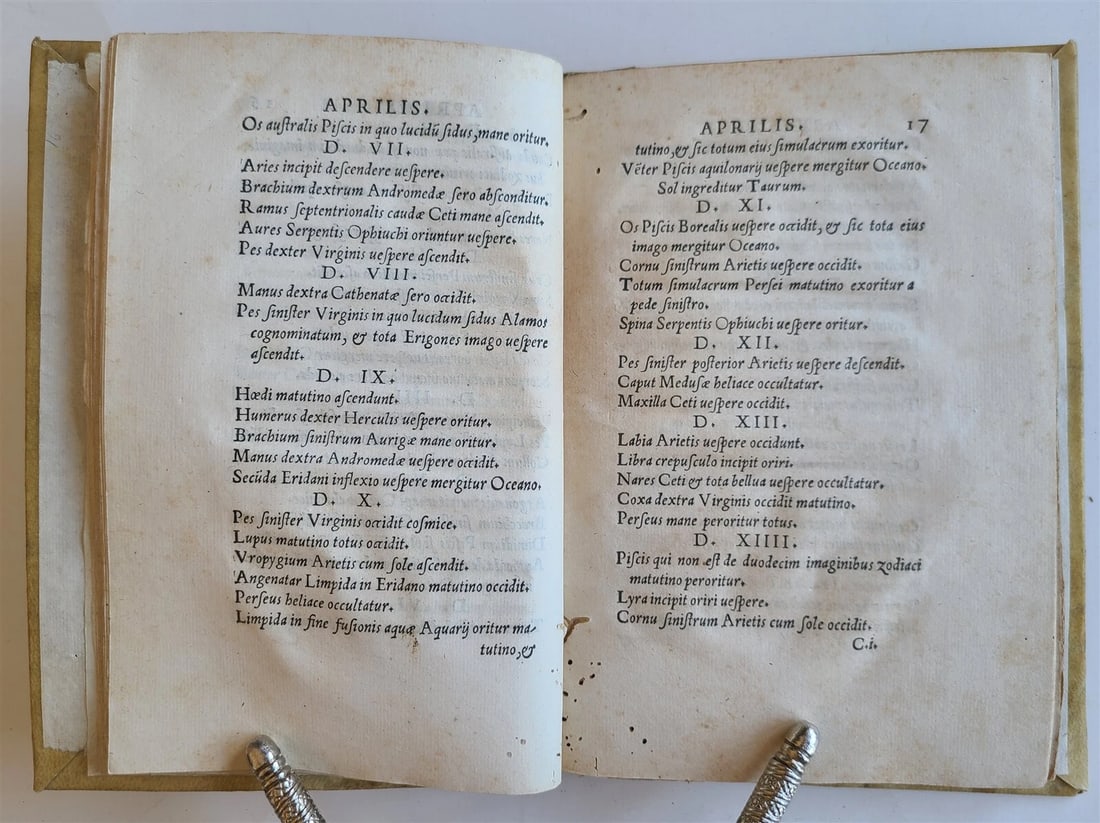 APRILIS.
Os auſtralis Piſcis in quo lucidũ ſidus, mane oritur.
D. VII.
Aries incipit deſcendere ueſpere.
Brachium dextrum Andromedæ ſero abſconditur.
Ramus ſeptentrionalis caudæ Ceti mane aſcendit.
Aures Serpentis Ophiuchi oriuntur ueſpere.
Pes dexter Virginis ueſpere aſcendit.
D. VIII.
Manus dextra Cathenatæ ſero occidit.
Pes ſiniſter Virginis in quo lucidum ſidus Alamot
cognominatum, & tota Erigones imago ueſpere
aſcendit.
D. IX.
Hœdi matutino aſcendunt.
Humerus dexter Herculis ueſpere oritur.
Brachium ſiniſtrum Aurigæ mane oritur.
Manus dextra Andromedæ ueſpere occidit.
Secũda Eridani inflexio ueſpere mergitur Oceano.
D. X.
Pes ſiniſter Virginis occidit coſmice.
Lupus matutino totus occidit.
Vropygium Arietis cum ſole aſcendit.
Angenatar Limpida in Eridano matutino occidit.
Perſeus heliace occultatur.
Limpida in fine fuſionis aquæ Aquarij oritur ma-
tutino, &
APRILIS. 17
tutino, & ſic totum eius ſimulacrum exoritur.
Vẽter Piſcis aquilonarij ueſpere mergitur Oceano.
Sol ingreditur Taurum.
D. XI.
Os Piſcis Borealis ueſpere occidit, & ſic tota eius
imago mergitur Oceano.
Cornu ſiniſtrum Arietis ueſpere occidit.
Totum ſimulacrum Perſei matutino exoritur a
pede ſiniſtro.
Spina Serpentis Ophiuchi ueſpere oritur.
D. XII.
Pes ſiniſter poſterior Arietis ueſpere deſcendit.
Caput Meduſæ heliace occultatur.
Maxilla Ceti ueſpere occidit.
D. XIII.
Labia Arietis ueſpere occidunt.
Libra crepuſculo incipit oriri.
Nares Ceti & tota bellua ueſpere occultatur.
Coxa dextra Virginis occidit matutino.
Perſeus mane peroritur totus.
D. XIIII.
Piſcis qui non eſt de duodecim imaginibus zodiaci
matutino peroritur.
Lyra incipit oriri ueſpere.
Cornu ſiniſtrum Arietis cum ſole occidit.
C.i.